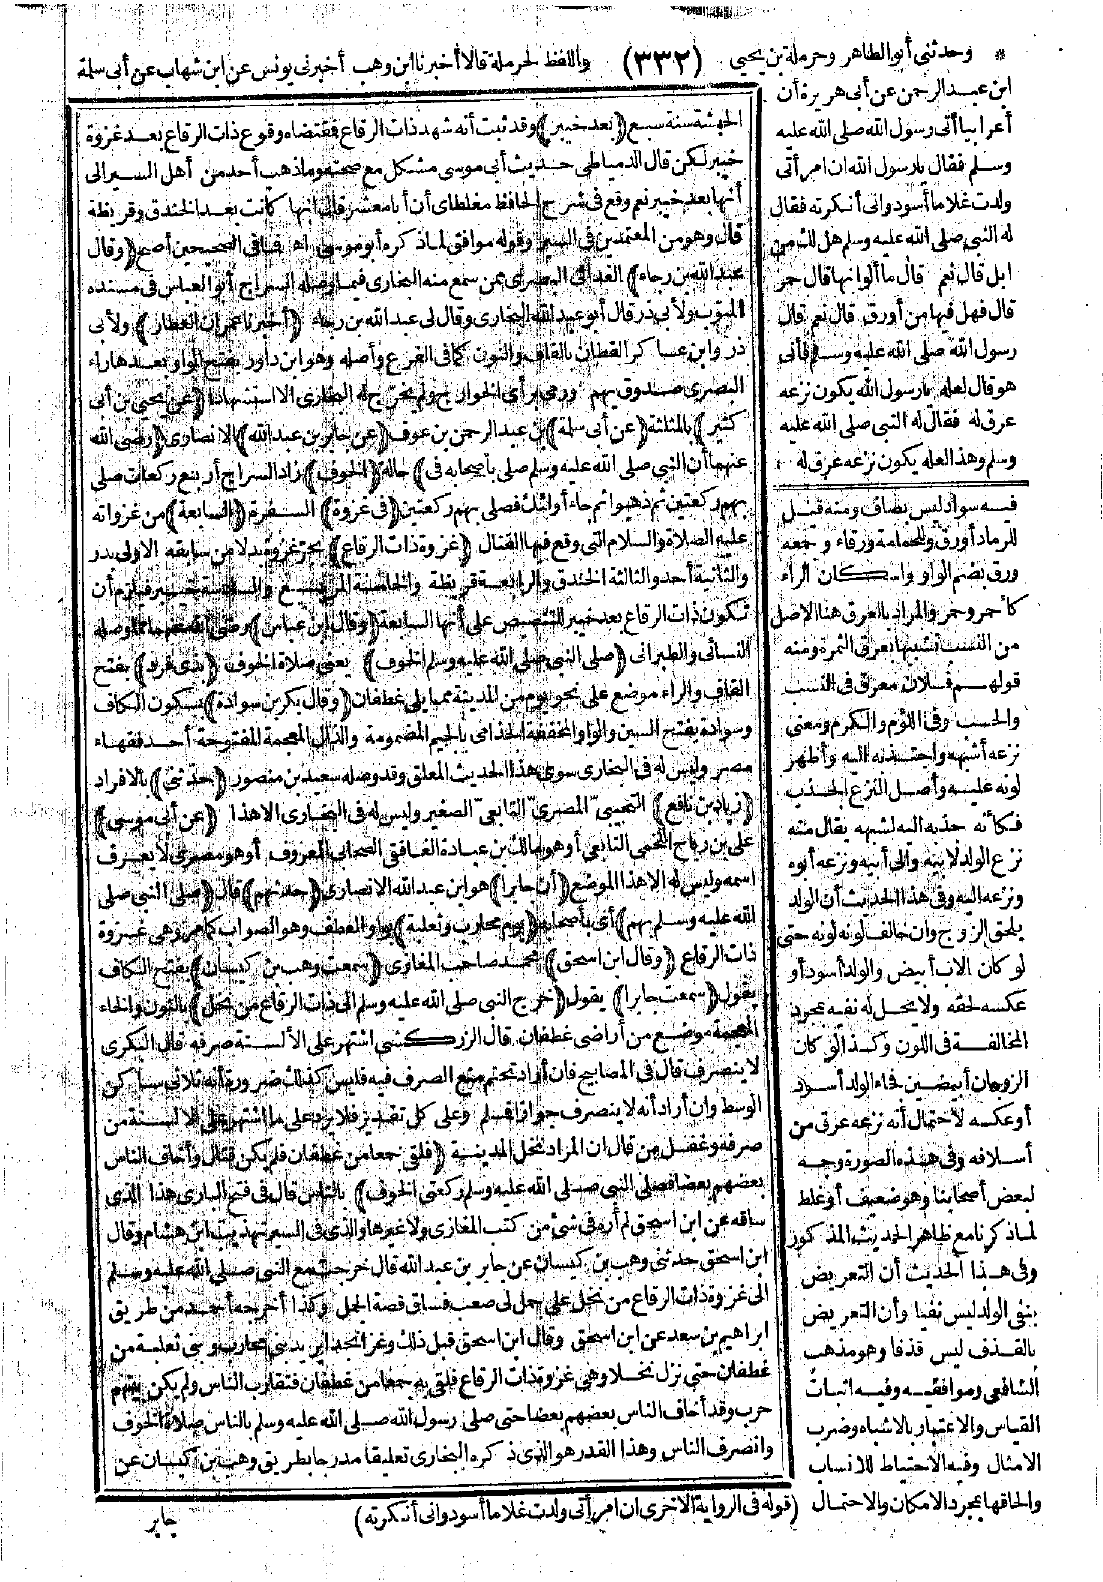 * وحدثني أبو الطاهر وحرملة بن يحيى (٣٣٢) واللفظ لحرملة قالا أخبرنا ابن وهب أخبرني يونس عن ابن شهاب عن أبي سلمة
ابن عبد الرحمن عن أبي هريرة أن
أعرابيا أتى رسول الله صلى الله عليه
وسلم فقال يا رسول الله ان امرأتي
ولدت غلاما أسود واني أنكرته فقال
له النبي صلى الله عليه وسلم هل لك من
ابل قال نعم قال ما ألوانها قال حمر
قال فهل فيها من أورق قال نعم قال
رسول الله صلى الله عليه وسلم فأنى
هو قال لعله يا رسول الله يكون نزعه
عرق له فقال له النبي صلى الله عليه
وسلم وهذا لعله يكون نزعه عرق له
فيه سواد ليس بصاف ومنه قيل
للرماد أورق وللحمامة ورقاء وجمعه
ورق بضم الواو واسكان الراء
كأحمر وحمر والمراد بالعرق هنا الاصل
من النسب تشبيها بعرق الثمرة ومنه
قولهم فلان معرق في النسب
والحسب وفي اللؤم والكرم ومعنى
نزعه أشبهه واجتذبه اليه وأظهر
لونه عليه وأصل النزع الجذب
فكأنه جذبه اليه لشبهه يقال منه
نزع الولد لابيه والى أبيه ونزعه أبوه
ونزعه اليه وفي هذا الحديث أن الولد
يلحق الزوج وان خالف لونه لونه حتى
لو كان الاب أبيض والولد أسود أو
عكسه لحقه ولا يحل له نفيه بمجرد
المخالفة في اللون وكذا لو كان
الزوجان أبيضين فجاء الولد أسود
أو عكسه لاحتمال أنه نزعه عرق من
أسلافه وفي هذه الصورة وجه
لبعض أصحابنا وهو ضعيف أو غلط
لما ذكرنا مع ظاهر الحديث المذكور
وفي هذا الحديث أن التعريض
بنفي الولد ليس نفيا وأن التعريض
بالقذف ليس قذفا وهو مذهب
الشافعي وموافقيه وفيه اثبات
القياس والاعتبار بالاشباه وضرب
الامثال وفيه الاحتياط للانساب
والحاقها بمجرد الامكان والاحتمال (قوله في الرواية الاخرى ان امرأتي ولدت غلاما أسود واني أنكرته)
الحبشة سنة سبع (بعد خيبر) وقد ثبت أنه شهد ذات الرقاع فمقتضاه وقوع ذات الرقاع بعد غزوة
خيبر لكن قال الدمياطي حديث أبي موسى مشكل مع صحته وما ذهب أحد من أهل السير الى
أنها بعد خيبر نعم وقع في شرح الحافظ مغلطاي أن أبا معشر قال انها كانت بعد الخندق وقريظة
قال وهو من المعتمدين في السير وقوله موافق لما ذكره أبو موسى اه فما في الصحيحين أصح (وقال
عبد الله بن رجاء) الغداني البصري عن سمع منه البخاري فيما وصله السراج أبو العباس في مسنده
المبوب ولأبي ذر قال أبو عبد الله البخاري وقال لي عبد الله بن رجاء (أخبرنا عمران العطار) ولأبي
ذر وابن عساكر القطان بالقاف والنون كما في الفرع وأصله وهو ابن داور بفتح الواو بعدها راء
البصري صدوق يهم ورمي برأي الخوارج ولم يخرج له البخاري الا استشهادا (عن يحيى بن أبي
كثير) بالمثلثة (عن أبي سلمة) بن عبد الرحمن بن عوف (عن جابر بن عبد الله) الانصاري (رضي الله
عنهما أن النبي صلى الله عليه وسلم صلى بأصحابه في) حالة (الخوف) زاد السراج أربع ركعات صلى
بهم ركعتين ثم ذهبوا ثم جاء أولئك فصلى بهم ركعتين (في غزوة) السفرة (السابعة) من غزواته
عليه الصلاة والسلام التي وقع فيها القتال (غزوة ذات الرقاع) بجر غزوة بدلا من سابقه الاولى بدر
والثانية أحد والثالثة الخندق والرابعة قريظة والخامسة المريسيع والسادسة خيبر فيلزم أن
تكون ذات الرقاع بعد خيبر للتنصيص على أنها السابعة (وقال ابن عباس) رضي الله عنهما مما وصله
النسائي والطبراني (صلى النبي صلى الله عليه وسلم الخوف) يعني صلاة الخوف (بذي قرد) بفتح
القاف والراء موضع على نحو يوم من المدينة مما يلي غطفان (وقال بكر بن سوادة) بسكون الكاف
وسوادة بفتح السين والواو المخففة الجذامي بالجيم المضمومة والذال المعجمة المفتوحة أحد فقهاء
مصر وليس له في البخاري سوى هذا الحديث المعلق وقد وصله سعيد بن منصور (حدثني) بالافراد
(زياد بن نافع) التجيبي المصري التابعي الصغير وليس له في البخاري الا هذا (عن أبي موسى)
علي بن رباح اللخمي التابعي أو هو مالك بن عبادة الغافقي الصحابي المعروف أو هو مصري لا يعرف
اسمه وليس له الا هذا الموضع (أن جابرا) هو ابن عبد الله الانصاري (حدثهم) قال (صلى النبي صلى
الله عليه وسلم بهم) أي بأصحابه (يوم محارب وثعلبة) بواو العطف وهو الصواب كما مر وهي غزوة
ذات الرقاع (وقال ابن اسحق) محمد صاحب المغازي (سمعت وهب بن كيسان) بفتح الكاف
يقول (سمعت جابرا) يقول (خرج النبي صلى الله عليه وسلم الى ذات الرقاع من نخل) بالنون والخاء
المعجمة موضع من أراضي غطفان قال الزركشي اشتهر على الألسنة صرفه قال البكري
لا ينصرف قال في المصابيح فان أراد تحتم منع الصرف فيه فليس كذلك ضرورة أنه ثلاثي ساكن
الوسط وان أراد أنه لا ينصرف جوازا فمسلم وعلى كل تقدير فلا يرد على ما اشتهر على الالسنة من
صرفه وغفل من قال ان المراد نخل المدينة (فلقي جمعا من غطفان فلم يكن قتال وأخاف الناس
بعضهم بعضا فصلى النبي صلى الله عليه وسلم ركعتي الخوف) بالناس قال في فتح الباري هذا الذي
ساقه عن ابن اسحق لم أره في شئ من كتب المغازي ولا غيرها والذي في السير تهذيب ابن هشام وقال
ابن اسحق حدثني وهب بن كيسان عن جابر بن عبد الله قال خرجت مع النبي صلى الله عليه وسلم
الى غزوة ذات الرقاع من نخل على جمل لي صعب فساق قصة الجمل وكذا أخرجه أحمد من طريق
ابراهيم بن سعد عن ابن اسحق وقال ابن اسحق قبل ذلك وغزا نجدا يريد بني محارب وبني ثعلبة من
غطفان حتى نزل نخلا وهي غزوة ذات الرقاع فلقي به جمعا من غطفان فتقارب الناس ولم يكن بينهم
حرب وقد أخاف الناس بعضهم بعضا حتى صلى رسول الله صلى الله عليه وسلم بالناس صلاة الخوف
وانصرف الناس وهذا القدر هو الذي ذكره البخاري تعليقا مدرجا بطريق وهب بن كيسان عن
جابر